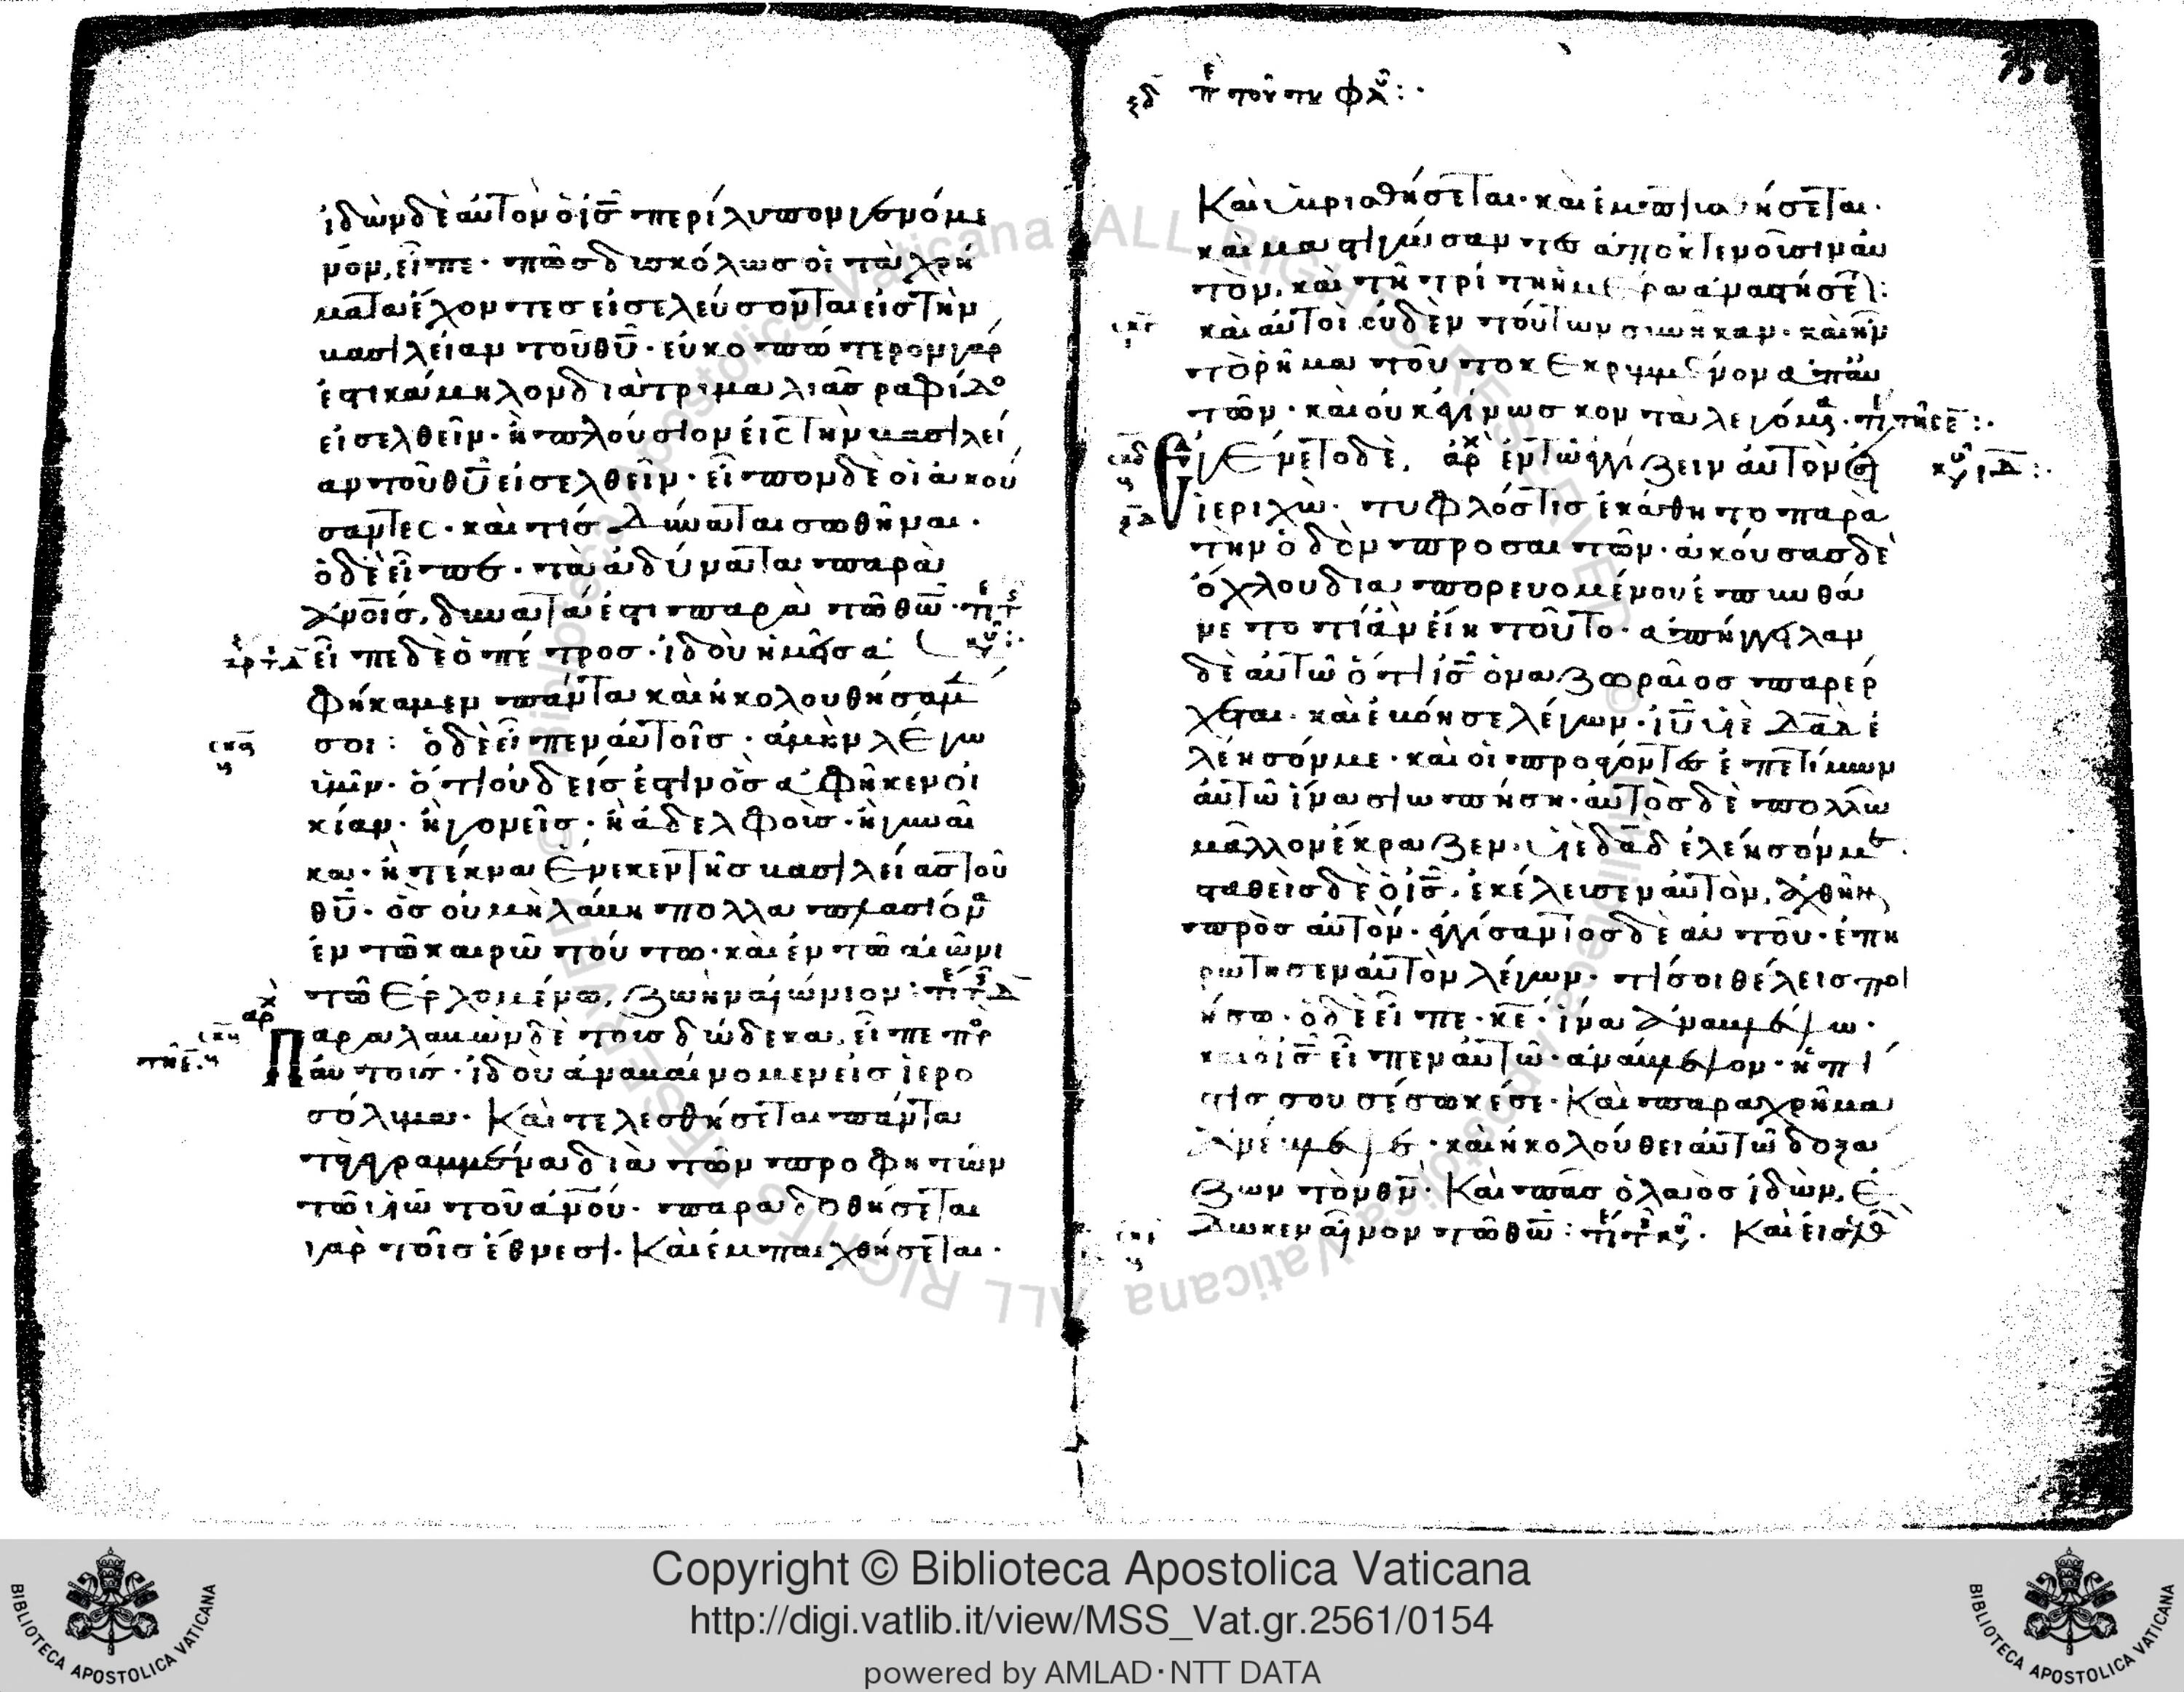 ἰδὼν δὲ αὐτὸν ὁ ις περίλυπον γενόμε
νον, εἶπε· πῶς δυσκόλως οἱ τὰ χρή
ματα ἔχοντες εἰσελεύσονται εἰς τὴν
βασιλείαν τοῦ θυ· εὐκοπώτερον γάρ
ἐστι κάμηλον διὰ τρυμαλιᾶς ραφίδο
εἰσελθεῖν· ἢ πλούσιον εἰς τὴν βασιλεί
αν τοῦ θυ εἰσελθεῖν· εἶπον δὲ οἱ ἀκού
σαντες· καὶ τίς δύναται σωθῆναι·
ὁ δὲ εἶπε· τὰ ἀδύνατα παρὰ
ανοις, δυνατά ἐστι παρὰ τῶ θω·
εἶπε δὲ ὁ πέτρος· ἰδοὺ ἡμεῖς ἀ
φήκαμεν πάντα καὶ ἠκολουθήσαμέν
σοι: ὁ δὲ εἶπεν αὐτοῖς· ἀμὴν λέγω
ὑμῖν· ὅτι οὐδείς ἐστιν ὃς ἀφῆκεν οἰ
κίαν· ἢ γονεῖς· ἢ ἀδελφοὺς· ἢ γυναῖ
κα· ἢ τέκνα ἕνεκεν τῆς βασιλείας τοῦ
θυ· ὃς οὐ μὴ λάβη πολλαπλασίονα
ἐν τῶ καιρῶ τούτω· καὶ ἐν τῶ αἰῶνι
τῶ ἐρχομένω, ζωὴν αἰώνιον:
Παραλαβὼν δὲ τοὺς δώδεκα, εἶπε πρ
αὐτούς· ἰδοὺ ἀναβαίνομεν εἰς ἱερο
σόλυμα· Καὶ τελεσθήσεται πάντα
τὰ γεγραμμένα διὰ τῶν προφητῶν
τῶ υιω τοῦ ανου· παραδοθήσεται
γὰρ τοῖς ἔθνεσι· Καὶ ἐμπαιχθήσεται·
Καὶ ὑβρισθήσεται· καὶ ἐμπτυσθήσεται·
καὶ μαστιγώσαντες ἀποκτενοῦσιν αὐ
τὸν, καὶ τῆ τρίτη ἡμέρα ἀναστήσεται:
καὶ αὐτοὶ οὐδὲν τούτων συνῆκαν· καὶ ἦν
τὸ ρῆμα τοῦτο κεκρυμμένον ἀπ αὐ
τῶν· καὶ οὐκ ἐγίνωσκον τὰ λεγόμενα·
Ἐγένετο δὲ, ἐν τῶ ἐγγίζειν αὐτὸν εἰς
ἱεριχὼ· τυφλός τις ἐκάθητο παρὰ
τὴν ὁδὸν προσαιτῶν· ἀκούσας δὲ
ὄχλου διαπορευομένου ἐπυνθά
νετο τί ἂν εἴη τοῦτο· ἀπήγγειλαν
δὲ αὐτῶ ὅτι ις ὁ ναζωραῖος παρέρ
χεται· καὶ ἐβόησε λέγων· ιυ υἱὲ δαδ ἐ
λέησόν με· καὶ οἱ προάγοντες ἐπετίμων
αὐτῶ ἵνα σιωπήση· αὐτὸς δὲ πολλῶ
μᾶλλον ἔκραζεν· υἱὲ δαδ ἐλέησόν με·
σταθεὶς δὲ ὁ ις, ἐκέλευσεν αὐτὸν, ἀχθῆναι
πρὸς αὐτόν· ἐγγίσαντος δὲ αὐτοῦ· ἐπη
ρώτησεν αὐτὸν λέγων· τί σοι θέλεις ποι
ήσω· ὁ δὲ εἶπε· κε· ἵνα ἀναβλέψω·
καὶ ὁ ις εἶπεν αὐτῶ· ἀνάβλεψον· ἡ πί
στις σου σέσωκέ σε· Καὶ παραχρῆμα
ἀνέβλεψε· καὶ ἠκολούθει αὐτῶ δοξά
ζων τὸν θν· Καὶ πᾶς ὁ λαὸς ἰδὼν, ἔ
δωκεν αἶνον τῶ θω: Καὶ εἰσελθ
Copyright © Biblioteca Apostolica Vaticana
http://digi.vatlib.it/view/MSS_Vat.gr.2561/0154
powered by AMLAD·NTT DATA
BIBLIOTECA APOSTOLICA VATICANA
BIBLIOTECA APOSTOLICA VATICANA